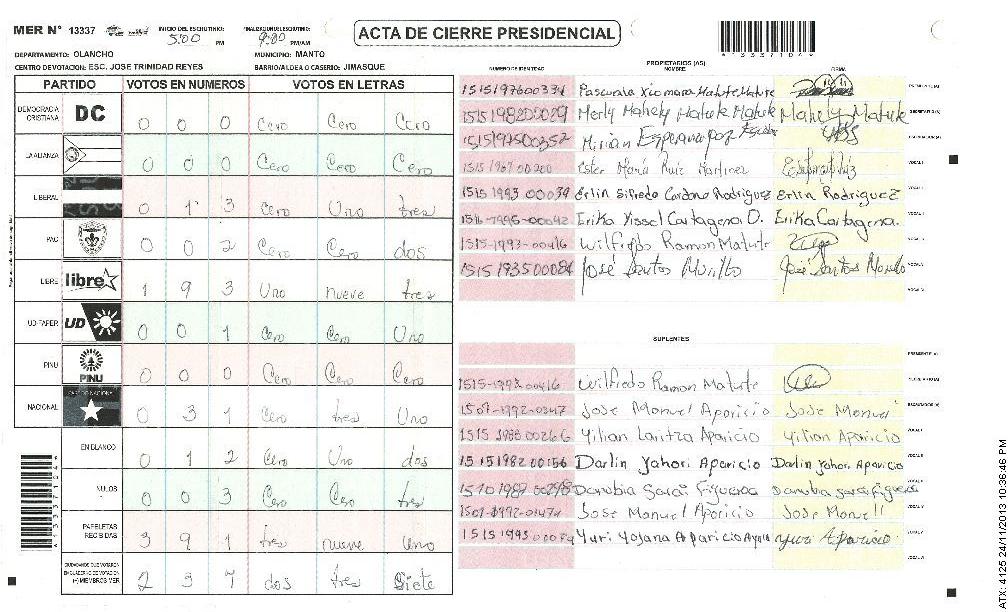 MER N° 13337
INICIO DEL ESCRUTINIO: 5:00 PM
FINALIZACION ESCRUTINIO: 9:00 PM/AM
ACTA DE CIERRE PRESIDENCIAL
A13337104
DEPARTAMENTO: OLANCHO
MUNICIPIO: MANTO
CENTRO DE VOTACION: ESC. JOSE TRINIDAD REYES
BARRIO/ALDEA O CASERIO: JIMASQUE
PARTIDO VOTOS EN NUMEROS VOTOS EN LETRAS
DEMOCRACIA CRISTIANA DC 0 0 0 Cero Cero Cero
LA ALIANZA 0 0 0 Cero Cero Cero
LIBERAL 0 1 3 Cero Uno tres
PAC 0 0 2 Cero Cero dos
LIBRE libre 1 9 3 Uno nueve tres
UD-FAPER UD 0 0 1 Cero Cero Uno
PINU PINU 0 0 0 Cero Cero Cero
NACIONAL 0 3 1 Cero tres Uno
EN BLANCO 0 1 2 Cero Uno dos
NULOS 0 0 3 Cero Cero tres
PAPELETAS RECIBIDAS 3 9 1 tres nueve Uno
CIUDADANOS QUE VOTARON EN CUADERNO DE VOTACION (+) MIEMBROS MER 2 3 7 dos tres Siete
PROPIETARIOS (AS)
NUMERO DE IDENTIDAD NOMBRE FIRMA
Pascuala Xiomara Matute Matute
Merly Mahely Matute Matute Mahely Matute
Mirian Esperanza
1515 1967 00200 Ester María Ruiz Martinez
1515 1993 00039 Erlin Sifredo Cardona Rodriguez Erlin Rodriguez
Erika Yissel Cartagena O. Erika Cartagena.
1515-1993-00416 Wilfredo Ramon Matute
José Santos Murillo José Santos Murillo
SUPLENTES
Wilfredo Ramon Matute
1507-1992-01474 Jose Manuel Aparicio Jose Manuel
1515 1988 00266 Yilian Laritza Aparicio Yilian Aparicio
1515 1982 00156 Darlin Yahori Aparicio Darlin Yahori Aparicio
Danubia Sarai Figueroa Danubia Sarai Figueroa
1507-1992-01474 Jose Manuel Aparicio Jose Manuel
Yuri Yojana Aparicio Ayala Yuri Aparicio
ATX: 4125 24/11/2013 10:36:46 PM